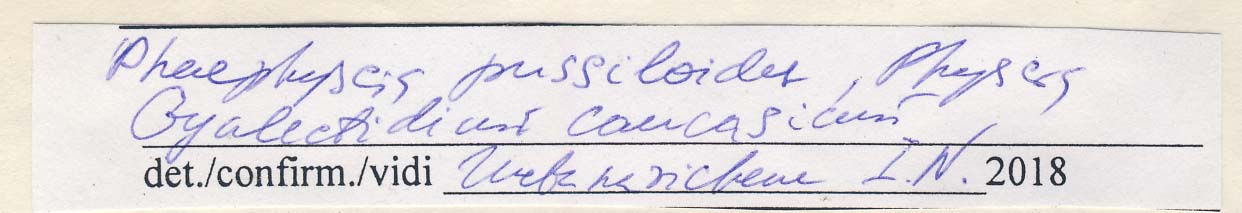 Phaephyscia pussiloides, Physcia
Gyalectidium caucasicum,
det./confirm./vidi Urbanavichene I.N. 2018